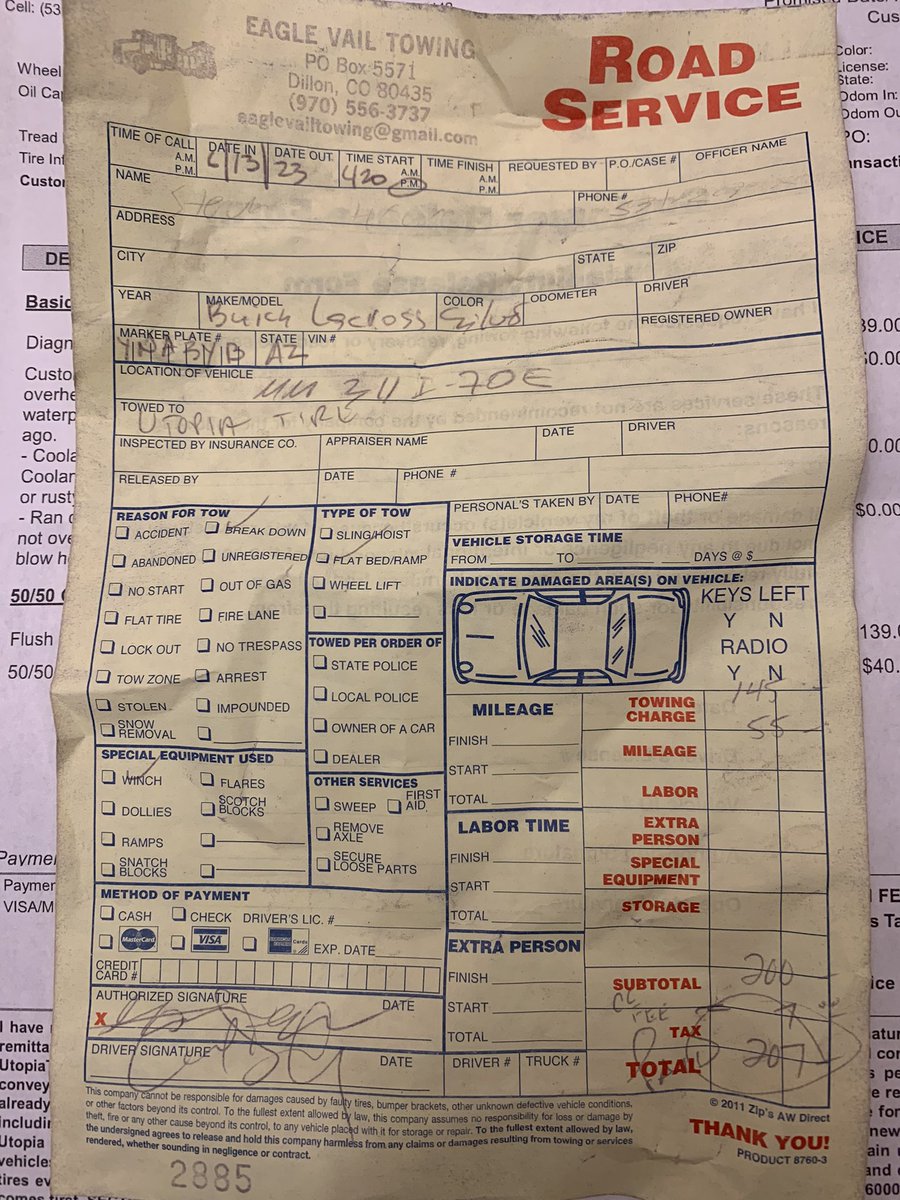 Cell: (53
Cus
EAGLE VAIL TOWING
PO Box 5571
Dillon, CO 80435
(970) 556-3737
eaglevailtowing@gmail.com
ROAD
SERVICE
Wheel
Oil Cap
Tread
Tire Inf
Custom
Color:
License:
State:
Odom In:
Odom Ou
PO:
ansacti
TIME OF CALL A.M. P.M.
DATE IN
DATE OUT
TIME START A.M. P.M.
TIME FINISH A.M. P.M.
REQUESTED BY
P.O./CASE #
OFFICER NAME
2/13/23
420
NAME
PHONE #
ADDRESS
CITY
STATE
ZIP
YEAR
MAKE/MODEL
COLOR
ODOMETER
DRIVER
Buick Lacross
REGISTERED OWNER
MARKER PLATE #
STATE
VIN #
AZ
LOCATION OF VEHICLE
MM 211 I-70E
TOWED TO
UTOPIA TIRE
INSPECTED BY INSURANCE CO.
APPRAISER NAME
DATE
DRIVER
RELEASED BY
DATE
PHONE #
PERSONAL'S TAKEN BY
DATE
PHONE#
DE
ICE
Basic
Diagn
Custo
overhe
waterp
ago.
- Coola
Coolan
or rusty
- Ran
not ove
blow h
50/50
Flush
50/50
39.00
$0.00
139.0
$40.
REASON FOR TOW
ACCIDENT
BREAK DOWN
ABANDONED
UNREGISTERED
NO START
OUT OF GAS
FLAT TIRE
FIRE LANE
LOCK OUT
NO TRESPASS
TOW ZONE
ARREST
STOLEN
IMPOUNDED
SNOW REMOVAL
SPECIAL EQUIPMENT USED
WINCH
FLARES
DOLLIES
SCOTCH BLOCKS
RAMPS
SNATCH BLOCKS
TYPE OF TOW
SLING/HOIST
FLAT BED/RAMP
WHEEL LIFT
TOWED PER ORDER OF
STATE POLICE
LOCAL POLICE
OWNER OF A CAR
DEALER
OTHER SERVICES
SWEEP
FIRST AID.
REMOVE AXLE
SECURE LOOSE PARTS
VEHICLE STORAGE TIME
FROM TO DAYS @ $
INDICATE DAMAGED AREA(S) ON VEHICLE:
KEYS LEFT
Y N
RADIO
Y N
MILEAGE
FINISH
START
TOTAL
LABOR TIME
FINISH
START
TOTAL
EXTRA PERSON
FINISH
START
TOTAL
TOWING CHARGE 145
MILEAGE 55
LABOR
EXTRA PERSON
SPECIAL EQUIPMENT
STORAGE
SUBTOTAL 200
CC FEE
TAX 7
TOTAL 207
METHOD OF PAYMENT
CASH
CHECK
DRIVER'S LIC. #
MasterCard
VISA
Cards
EXP. DATE
CREDIT CARD #
AUTHORIZED SIGNATURE
DATE
X
DRIVER SIGNATURE
DATE
DRIVER #
TRUCK #
This company cannot be responsible for damages caused by faulty tires, bumper brackets, other unknown defective vehicle conditions.
or other factors beyond its control. To the fullest extent allowed by law, this company assumes no responsibility for loss or damage by
theft, fire or any other cause beyond its control, to any vehicle placed with it for storage or repair. To the fullest extent allowed by law,
the undersigned agrees to release and hold this company harmless from any claims or damages resulting from towing or services
rendered, whether sounding in negligence or contract.
© 2011 Zip's AW Direct
THANK YOU!
PRODUCT 8760-3
2885
Paymen
Paymen
VISA/M
I have
remitta
Utopia
convey
already
Includin
Utopia
vehicle
tires ev
comes first.